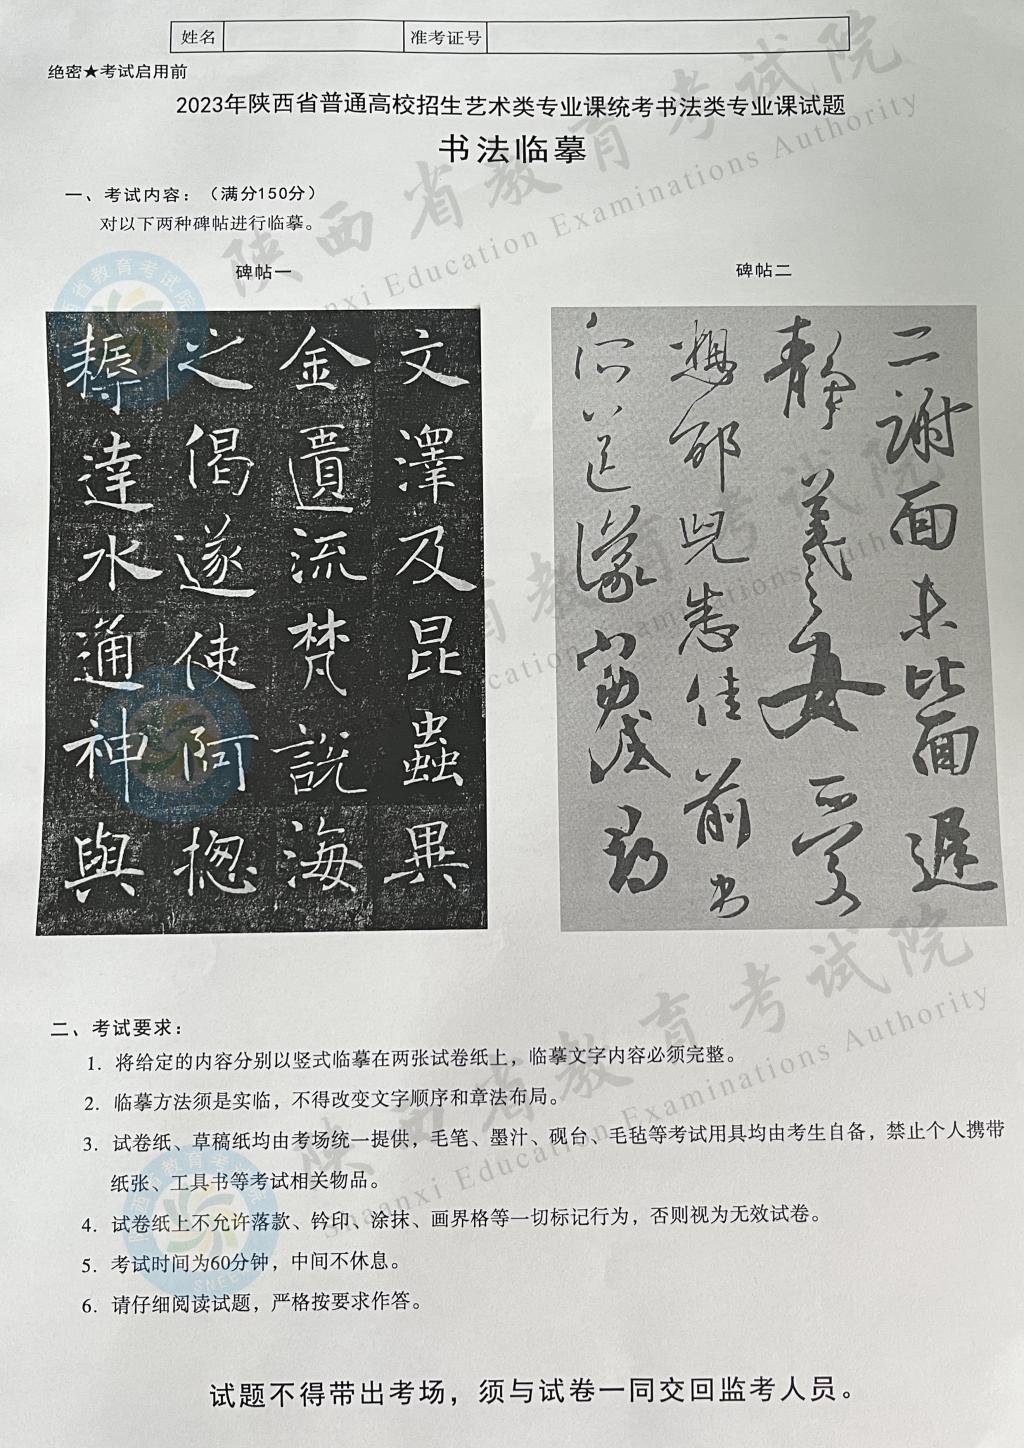 姓名
准考证号
绝密★考试启用前
2023年陕西省普通高校招生艺术类专业课统考书法类专业课试题
书法临摹
一、考试内容：（满分150分）
对以下两种碑帖进行临摹。
碑帖一
碑帖二
文澤及昆蟲異
金匱流梵說海
之偈遂使阿揔
耨達水通神與
二謝面未比面遲
靜羲之女愛
想邵兒悉佳前
二、考试要求：
1. 将给定的内容分别以竖式临摹在两张试卷纸上，临摹文字内容必须完整。
2. 临摹方法须是实临，不得改变文字顺序和章法布局。
3. 试卷纸、草稿纸均由考场统一提供，毛笔、墨汁、砚台、毛毡等考试用具均由考生自备，禁止个人携带
纸张、工具书等考试相关物品。
4. 试卷纸上不允许落款、钤印、涂抹、画界格等一切标记行为，否则视为无效试卷。
5. 考试时间为60分钟，中间不休息。
6. 请仔细阅读试题，严格按要求作答。
试题不得带出考场，须与试卷一同交回监考人员。
陕西省教育考试院
Shaanxi Education Examinations Authority